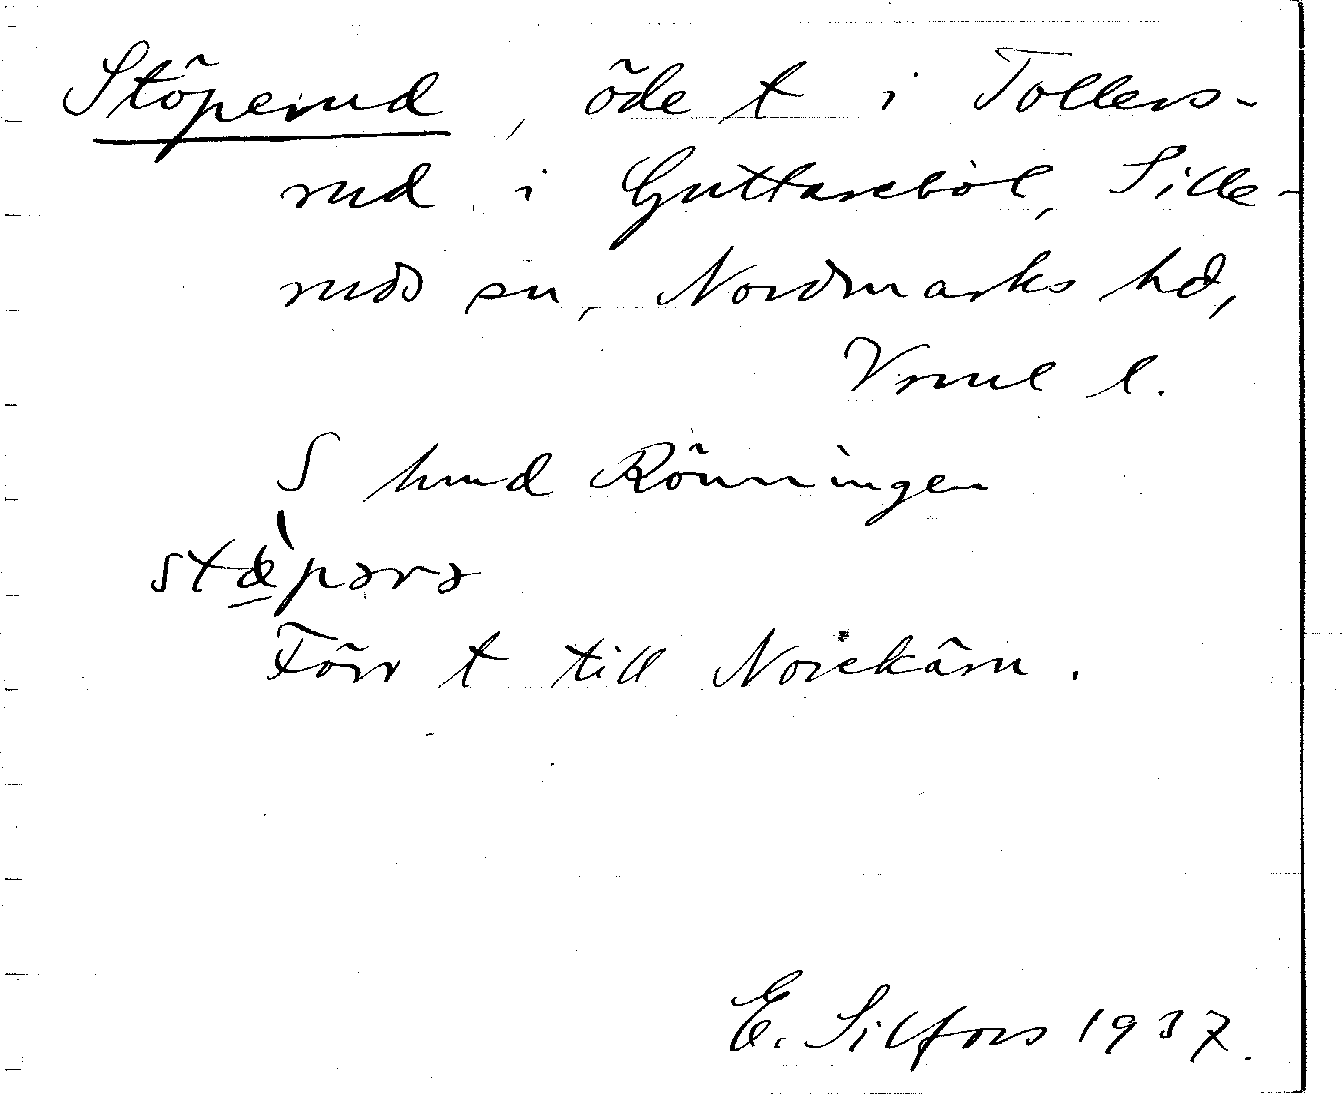 Stöperud, öde t i Tollers-
rud i Guttarebol, Sille-
ruds sn, Nordmarks hd,
Vrml l.
S hmd Rönningen
stæ̀pərə
Förr t till Norekärn.
E. Silfors 1937.